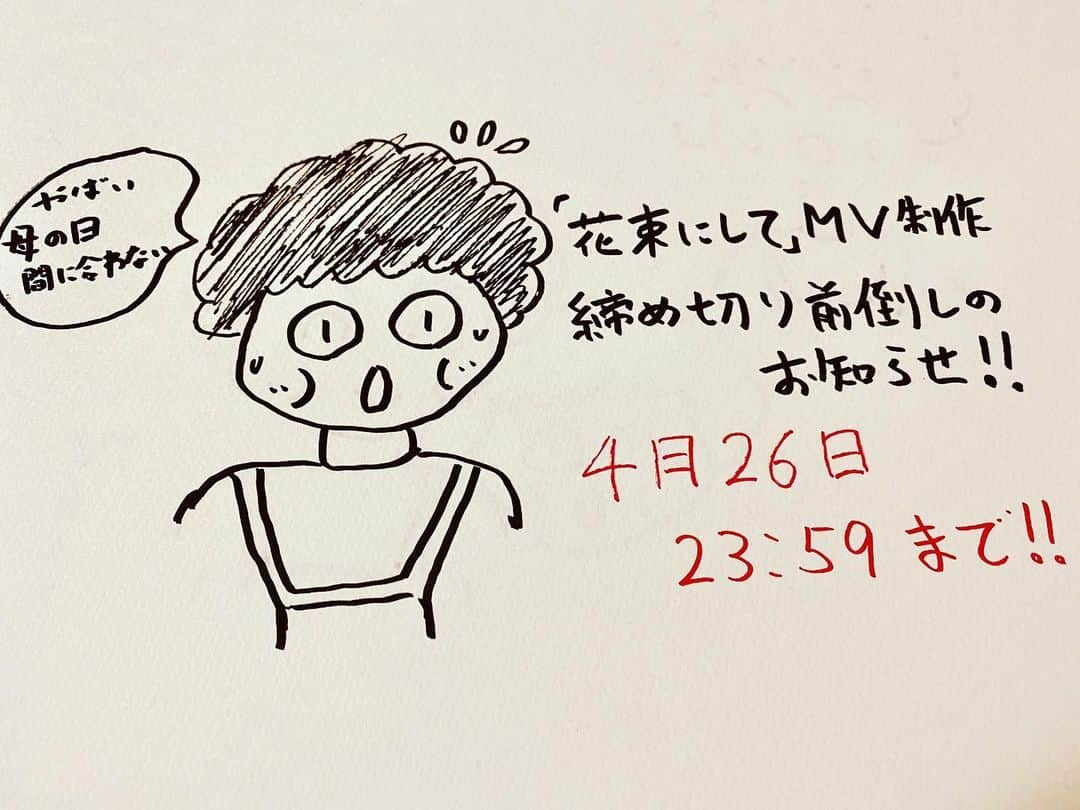 やばい
母の日
間に合わない
「花束にして」MV制作
締め切り前倒しの
お知らせ!!
4月26日
23:59まで!!